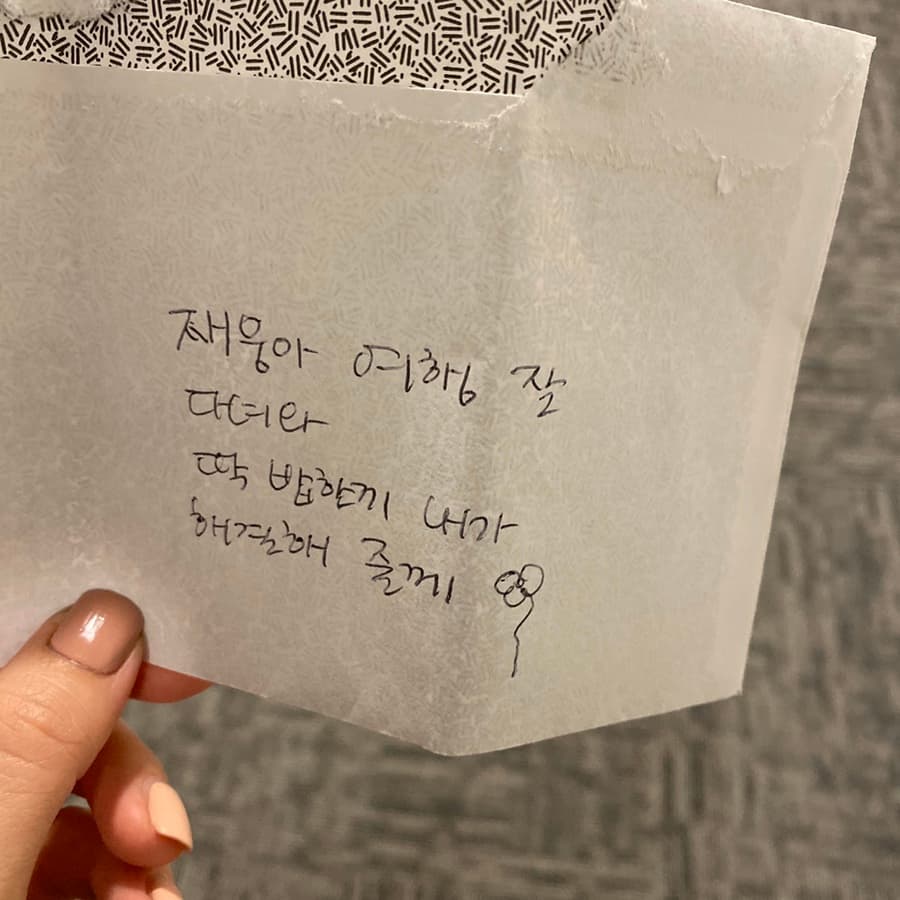 재웅아 여행 잘
다녀와
딱 밥한끼 내가
해결해 줄께